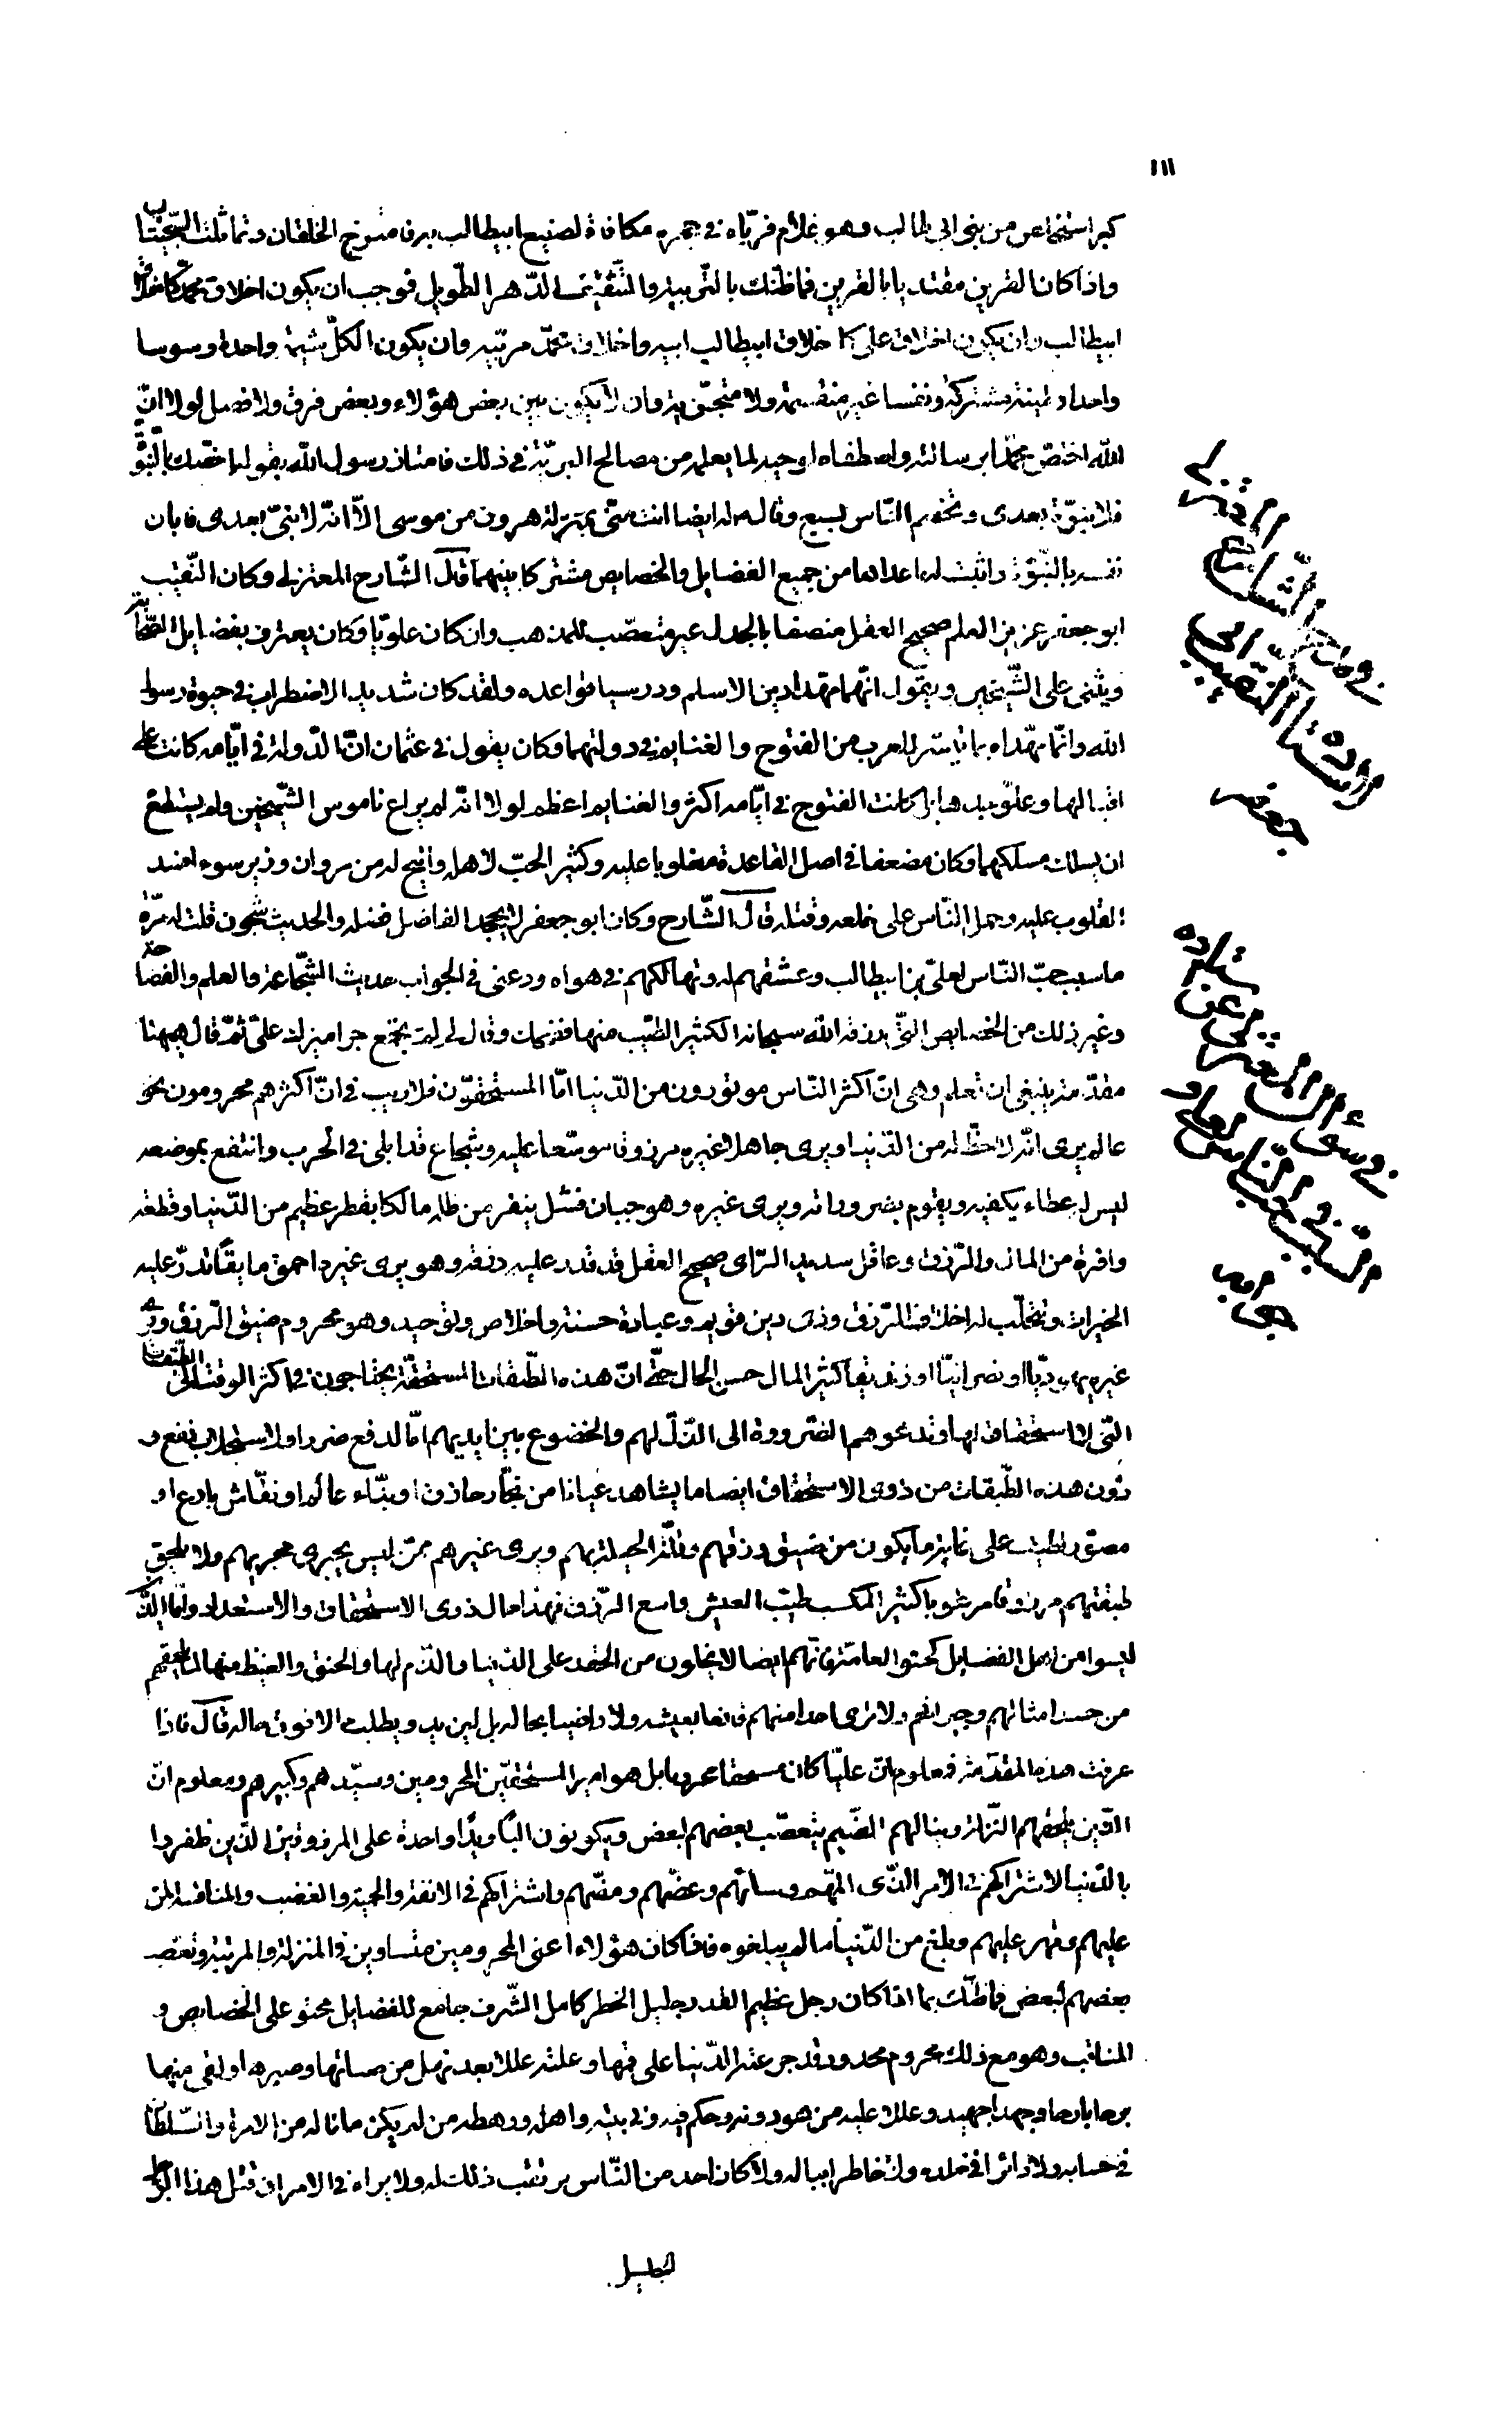 ١١١
كبر استخلص من بنى ابى طالب وهو غلام فربّاه فى حجره مكافاة لصنيع ابيطالب به فامتزج الخلقان وتماثلت السّجيّتان
واذا كان القرين مقتديا بالقرين فما ظنّك بالتّربية والتّثقيف الدّهر الطّويل فوجب ان يكون اخلاق محمّد كاخلاق
ابيطالب وان يكون اخلاق علىّ كاخلاق ابيطالب ابيه واخلاق محمّد مربّيه وان يكون الكلّ شيمة واحدة وسوسا
واحدا وطينة مشتركة ونفسا غير منقسمة ولا متجزّية وان لا يكون بين بعض هؤلاء وبعض فرق ولا فضل لولا انّ
الله اختصّ محمّدا برسالته واصطفاه لوحيه لما يعلمه من مصالح البريّة فى ذلك فامتاز رسول الله بقوله اخصمك بالنّبوّة
فلا نبوّة بعدى وتخصم النّاس بسبع وقال له ايضا انت منّى بمنزلة هرون من موسى الّا انّه لا نبىّ بعدى فابان
نفسه بالنّبوّة واثبت له ما عداها من جميع الفضايل والخصايص مشتركا بينهما قال الشّارح المعتزلى وكان النّقيب
ابو جعفر غزير العلم صحيح العقل منصفا بالجدل غير متعصّب للمذهب وان كان علويّا وكان يعترف بفضايل الصّحابة
ويثنى على الشّيخين ويقول انّهما مهّدا دين الاسلم ودرسيا قواعده ولقد كان شديد الاضطراب فى حيوة رسول
الله وانّما مهّداه بما تيسّر للعرب من الفتوح والغنايم فى دولتهما وكان يقول فى عثمان انّ الدّولة فى ايّامه كانت على
اقبالها وعلوّ جدها بل كانت الفتوح فى ايّامه اكثر والغنايم اعظم لولا انّه لم يراع ناموس الشّيخين ولم يستطع
ان يسلك مسلكهما وكان مضعفا فى اصل القاعدة مغلوبا عليه وكثير الحبّ لاهله واتيح له من مروان وزير سوء افسد
القلوب عليه وحمل النّاس على خلعه وقتله قال الشّارح وكان ابو جعفر لا يجحد الفاضل فضله والحديث شجون قلت له مرّة
ما سبب حبّ النّاس لعلىّ بن ابيطالب وعشقهم له وتهالكهم فى هواه ودعنى فى الجواب حديث الشّجاعة والعلم والفصاحة
وغير ذلك من الخصايص الّتى رزقه الله سبحانه الكثير الطّيّب منها فضحك وقال لى لم تجمع جراميزك علىّ ثمّ قال ههنا
مقدّمة ينبغى ان تعلم وهى انّ اكثر النّاس موتورون من الدّنيا امّا المستحقّون فلا ريب فى انّ اكثرهم محرومون نحو
عالم يرى انّه لا حظّ له من الدّنيا ويرى جاهلا غيره مرزوقا موسّعا عليه وشجاع قد ابلى فى الحرب وانتفع بموضعه
ليس له عطاء يكفيه ويقوم بضروراته ويرى غيره وهو جبان فشل يفرّ من ظلّه مالكا بقطر عظيم من الدّنيا وقطعة
وافرة من المال والرّزق وعاقل سديد الرّاى صحيح العقل قد قدر عليه رزقه وهو يرى غيره احمق مايقا تدرّ عليه
الخيرات وتتحلّب له اخلاف الرّزق وذى دين قويم وعبادة حسنة واخلاص وتوحيد وهو محروم ضيق الرّزق ويرى
غيره يهوديّا او نصرانيّا او زنديقا كثير المال حسن الحال حتّى انّ هذه الطّبقات المستحقّة يحتاجون فى اكثر الوقت الى الطّبقات
الّتى لا استحقاق لها وتدعوهم الضّرورة الى الذّلّ لهم والخضوع بين ايديهم امّا لدفع ضرر او لاستجلاب نفع و
دون هذه الطّبقات من ذوى الاستحقاق ايضا ما يشاهد عيانا من نجّار حاذق او بنّاء عالم او نقّاش بارع او
مصوّر لطيف على غاية ما يكون من ضيق رزقهم وقلّة الحيلة بهم ويرى غيرهم ممّن ليس يجرى مجريهم ولا يلحق
طبقتهم مرزوقا مرغوبا كثير المكسب طيّب العيش واسع الرّزق فهذا حال ذوى الاستحقاق والاستعداد وامّا الّذين
ليسوا من اهل الفضايل كحشو العامّة فانّهم ايضا لا يخلون من الحقد على الدّنيا والذّم لها والحنق والغيظ منها لما يلحقهم
من حسد امثالهم وجيرانهم ولا ترى احدا منهم قانعا بعيشه ولا راضيا بحاله بل يستزيد ويطلب الافوق حاله قال فاذا
عرفت هذه المقدّمة فمعلوم انّ عليّا كان مستحقا محروما بل هو امير المستحقّين المحرومين وسيّدهم وكبيرهم ومعلوم انّ
الّذين يلحقهم النّزلة وينالهم الضّيم يتعصّب بعضهم لبعض ويكونون البا ويدا واحدة على المرزوقين الّذين ظفروا
بالدّنيا لاشتراكهم فى الامر الّذى المهم وساءهم وعضّهم ومضّهم واشتراكهم فى الانفة والحميّة والغضب والمنافسة لمن
عليهم وقهر عليهم وبلغ من الدّنيا ما لم يبلغوه فاذا كان هؤلاء اعنى المحرومين متساوين فى المنزلة والمرتبة وتعصّب
بعضهم لبعض فما ظنّك بما اذا كان رجل عظيم القدر جليل الخطر كامل الشّرف جامع للفضايل محتو على الخصايص و
المناقب وهو مع ذلك محروم محدود وقد جرعته الدّنيا علاقمها وعلته عللا بعد نهل من صابها وصبرها ولقى منها
برحا بارحا وجهدا جهيدا وعلا عليه من هو دونه وحكم فيه وفى بنيه واهله ورهطه من لم يكن ما ناله من الامرة والسّلطان
فى حسابه ولا دائرا فى خلده ولا خاطرا بباله ولا كان احد من النّاس يرتقب ذلك له ولا يراه فى الامر ان قتل هذا الرّجل
الجليل
جعفر
جواب